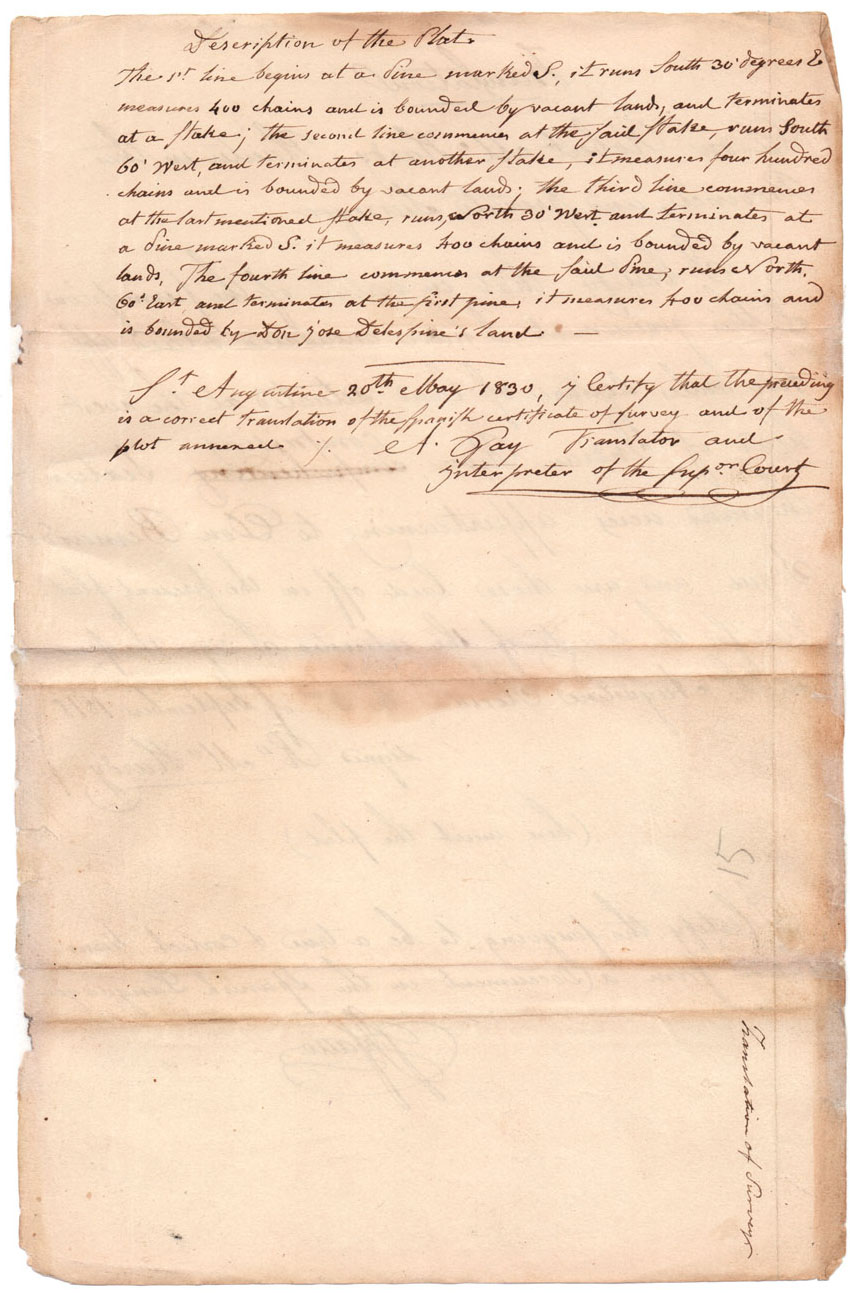 Description of the Plat
The 1st line begins at a Pine marked S., it runs South 30° degrees E
measures 400 chains and is bounded by vacant lands, and terminates
at a stake; the second line commences at the said stake, runs South
60° West, and terminates at another stake, it measures four hundred
chains and is bounded by vacant lands; the third line commences
at the last mentioned stake, runs, North 30° West and terminates at
a Pine marked S. it measures 400 chains and is bounded by vacant
lands, The fourth line commences at the said Pine, runs North.
60° East and terminates at the first pine, it measures 400 chains and
is bounded by Don Jose Delespine's land. —
St. Augustine 20th May 1830, I Certify that the preceding
is a correct translation of the Spanish certificate of survey and of the
plot annexed /.
A. Gay Translator and
interpreter of the Supor Court
15
Translation of Surveys